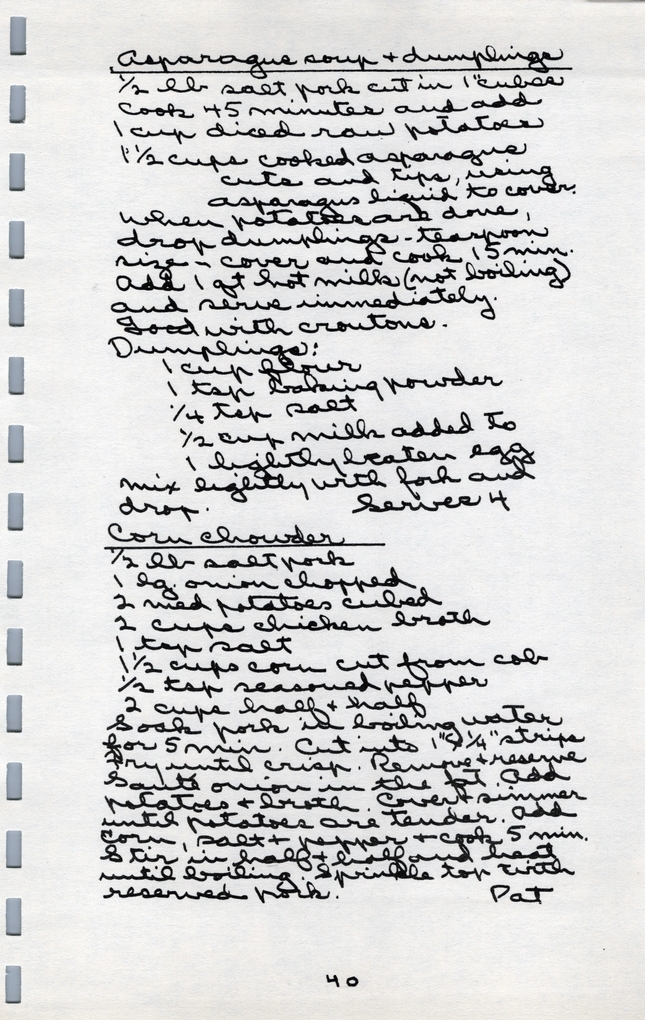 Asparagus soup + dumplings
1/2 lb salt pork cut in 1" cubes
cook 45 minutes and add
1 cup diced raw potatoes
1 1/2 cups cooked asparagus
cuts and tips, using
asparagus liquid to cover.
When potatoes are done,
drop dumplings - teaspoon
size - cover and cook 15 min.
Add 1 qt hot milk (not boiling)
and serve immediately.
Good with croutons.
Dumplings:
1 cup flour
1 tsp baking powder
1/4 tsp salt
1/2 cup milk added to
1 lightly beaten egg
mix lightly with fork and
drop. Serves 4
Corn chowder
1/2 lb salt pork
1 lg. onion chopped
2 med potatoes cubed
2 cups chicken broth
1 tsp salt
1 1/2 cups corn cut from cob
1/2 tsp seasoned pepper
2 cups half + half
Soak pork in boiling water
for 5 min. Cut into 1"x1/4" strips
Fry until crisp. Remove + reserve
Sauté onion in the fat. Add
potatoes + broth. Cover + simmer
until potatoes are tender. Add
corn, salt + pepper, + cook 5 min.
Stir in half + half and heat
until boiling. Sprinkle top with
reserved pork. Pat
40